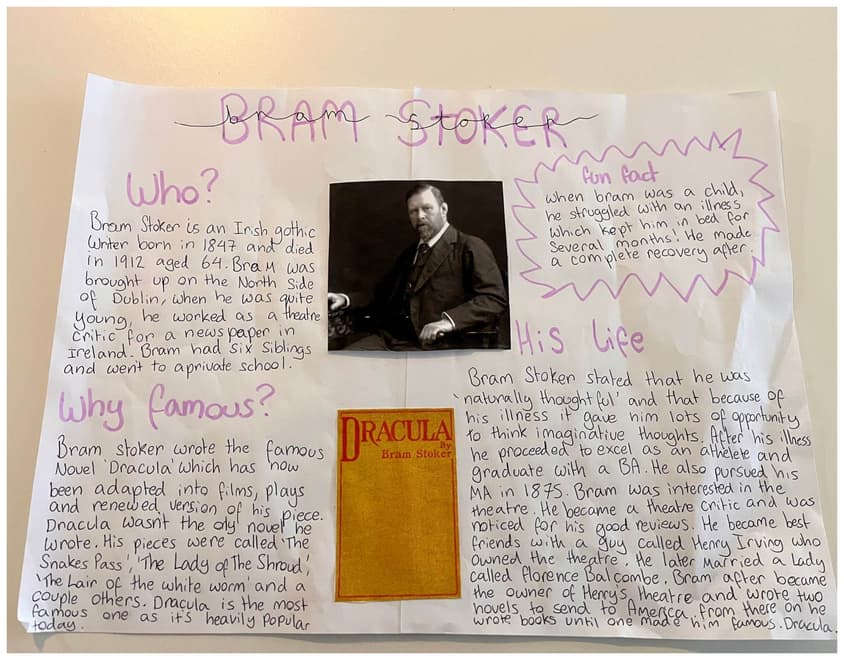 BRAM STOKER
bram stoker
Who?
Bram Stoker is an Irish gothic
writer born in 1847 and died
in 1912 aged 64. Bram was
brought up on the North Side
of Dublin, when he was quite
young, he worked as a theatre
critic for a newspaper in
Ireland. Bram had six siblings
and went to a private school.
Why famous?
Bram stoker wrote the famous
Novel 'Dracula' which has now
been adapted into films, plays
and renewed version of his piece.
Dracula wasnt the only novel he
wrote. His pieces were called 'The
Snakes Pass', 'The Lady of The Shroud',
'The Lair of the white worm' and a
couple others. Dracula is the most
famous one as it's heavily popular
today.
DRACULA
By
Bram Stoker
fun fact
when bram was a child,
he struggled with an illness
which kept him in bed for
several months! He made
a complete recovery after.
His life
Bram Stoker stated that he was
'naturally thoughtful' and that because of
his illness it gave him lots of opportunity
to think imaginative thoughts. After his illness
he proceeded to excel as an athelete and
graduate with a BA. He also pursued his
MA in 1875. Bram was interested in the
theatre. He became a theatre critic and was
noticed for his good reviews. He became best
friends with a guy called Henry Irving who
owned the theatre. He later married a lady
called Florence Balcombe. Bram after became
the owner of Henry's theatre and wrote two
novels to send to America from there on he
wrote books until one made him famous. Dracula.